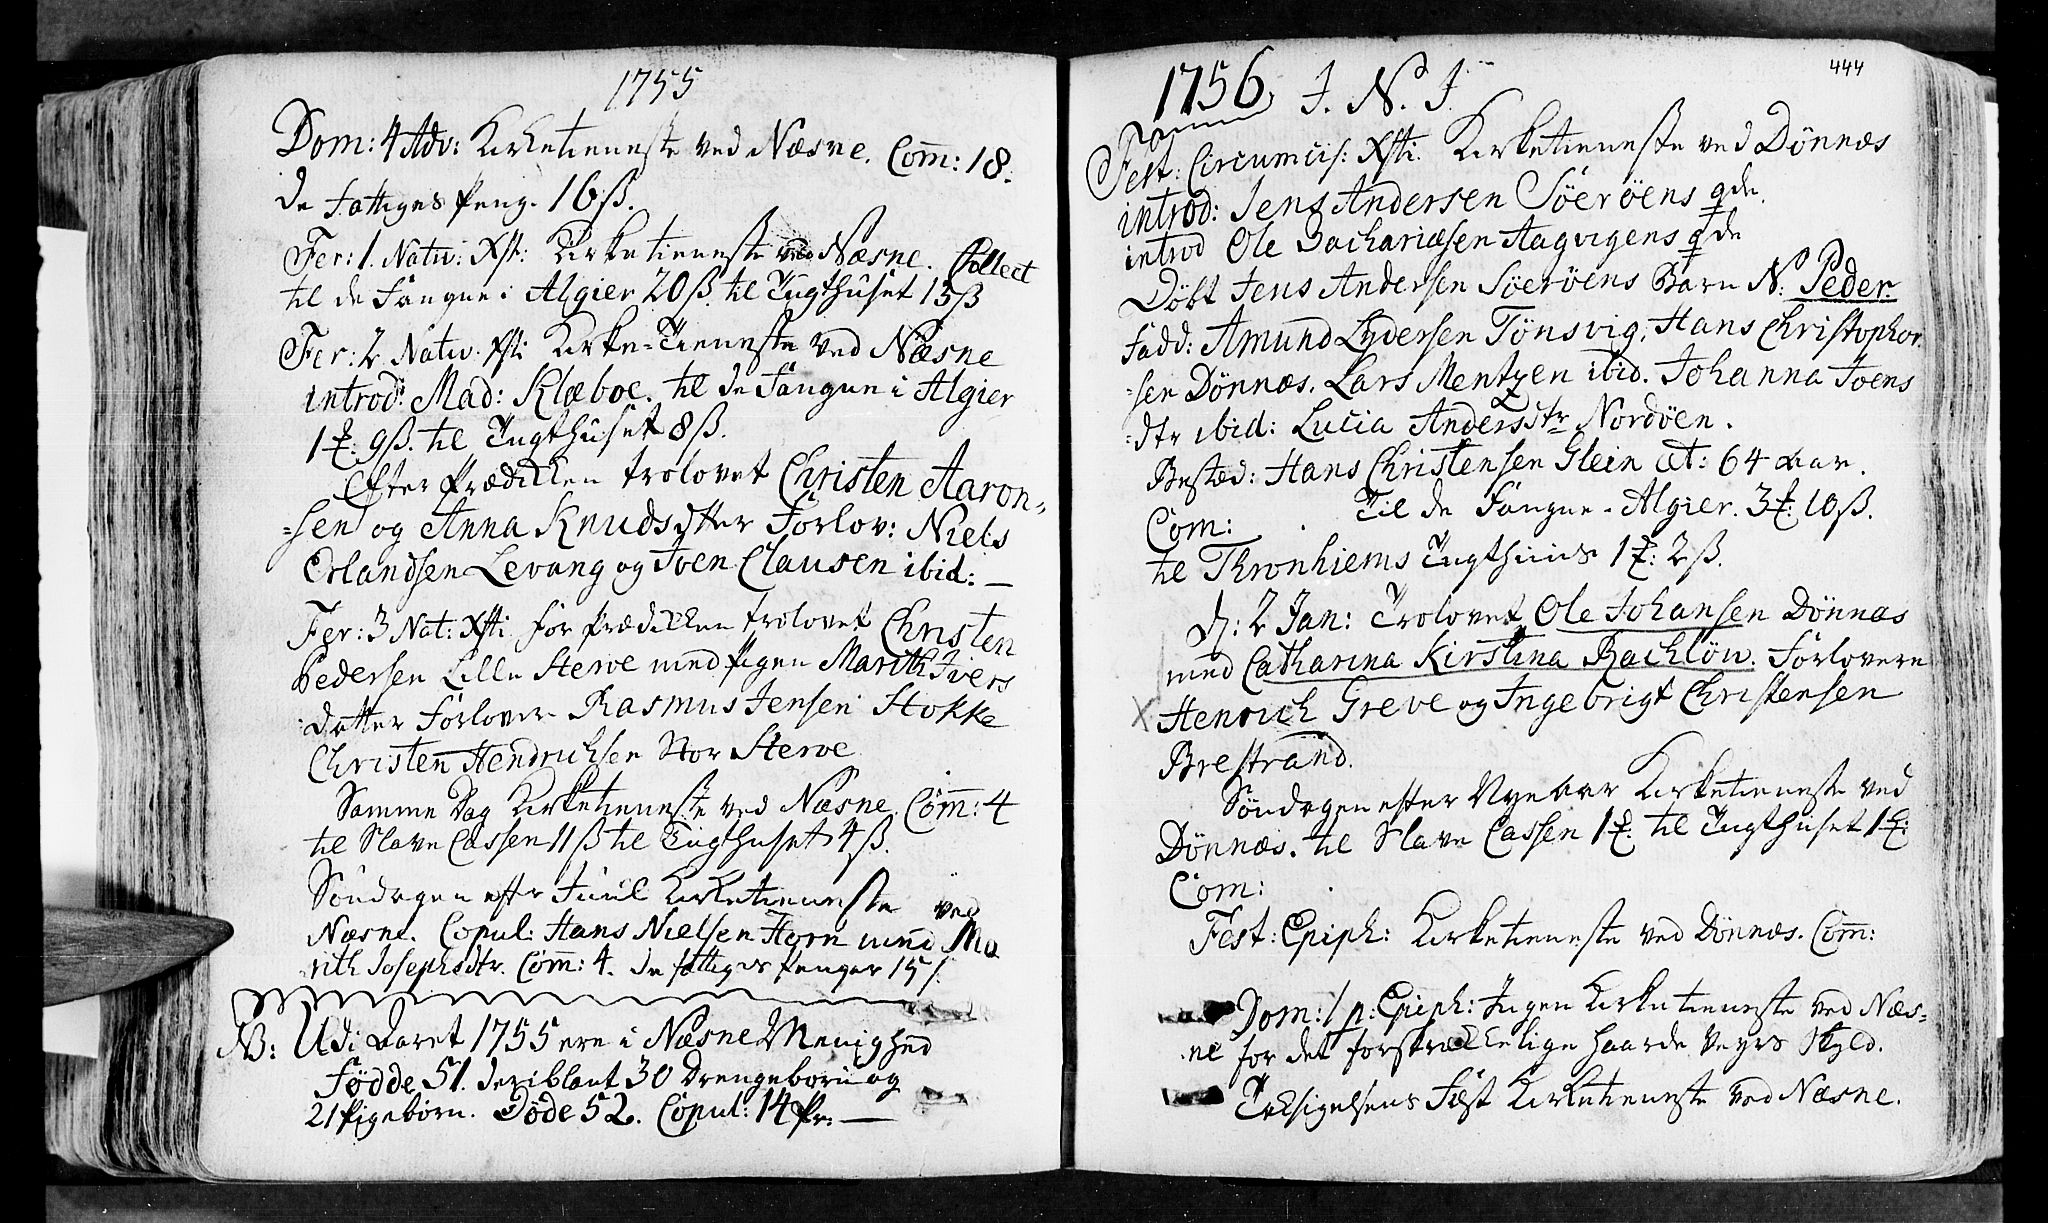 1755
Dom: 4 Adv: Kirketieneste ved Næsne. Com̄: 18.
de Fattiges Peng. 16ß.
Fer: 1. Nativ: Xsti: Kirketieneste ved Næsne. Collect
til de Fangne i Algier 20ß. til Tugthuset 15ß
Fer: 2 Nativ. Xsti Kirke-Tieneste ved Næsne
introd: Mad: Klæboe. til de Fangne i Algier
1 9ß. til Tugthuset 8ß.
Efter Prædikken trolovet Christen Aaron-
=sen og Anna Knudsdtter Forlov: Niels
Erlandsen Levang og Iven Clausen ibid: —
Fer: 3 Nat: Xsti for Prædikken trolovet Christen
Pedersen Lille Sterve med Pigen Marith Ivers
datter Forlover Rasmus Jensen Hokke
Christen Hendrichsen Stor Sterve
Samme Dag Kirketieneste ved Næsne. Com̄: 4
til Slave Cassen 11ß til Tugthuset 4ß.
Söndagen eftr Juul Kirketieneste ved
Næsne. Copul: Hans Nielsen Horn med Ma
rith Josephsdtr. Com̄: 4. de fattiges Penger 15ß.
NB: Udi Aaret 1755 ere i Næsne Menighed
Födde 51. deriblant 30 Drengebörn og
21 Pigebörn. Döde 52. Copul: 14 Pr. —
444
1756 J. N. J.
Fest: Circumcis: Xsti. Kirketieneste ved Dönnæs
introd: Jens Andersen Söeröens qde.
introd Ole Zachariæsen Aagvigens qde
Döbt Jens Andersen Söeröens Barn N: Peder.
Fadd: Amund Lydersen Tönsvig, Hans Christophor
=sen Dönnæs. Lars Mentzen ibid. Johanna Joens
=dtr ibid: Lucia Andersdtr Nordöen.
Bested: Hans Christensen Glein æt: 64 Aar.
Com: Til de Fangne - Algier. 3 10ß.
til Thronhiems Tugthuus 1 2ß.
D: 2 Jan: Trolovet Ole Johansen Dönnæs
med Catharina Kirstina Rachlöw. Forlovere
X Henrich Greve og Ingebrigt Christensen
Brestrand.
Söndagen efter Nyeaar Kirketieneste ved
Dönnæs. til Slave Cassen 1 til Tugthuset 1
Com:
Fest: Epiph: Kirketieneste ved Dönnæs. Com̄:
Dom: 1 p: Epiph: Ingen Kirketieneste ved Næs=
ne for det forskrækkelige haarde Veyrs Skyld.
Taksigelsens Fæst Kirketieneste ved Næsne.